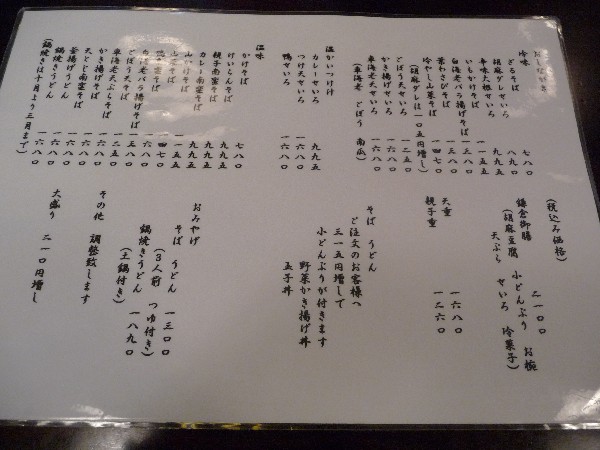 おしながき
冷味
ざるそば 七八〇
胡麻ダレせいろ 八九〇
辛味大根せいろ 九九五
いもかけそば 一一五五
白海老バラ揚げそば 一三八〇
葉わさびそば 一三八〇
冷やし山菜そば 一四七〇
(胡麻ダレは一〇五円増し)
ごぼう天せいろ 一二五〇
かき揚げせいろ 一六八〇
車海老天せいろ 一六八〇
(車海老 ごぼう 南瓜)
温かいつけ汁
カレーせいろ 九九五
つけ天せいろ 一六八〇
鴨せいろ 一六八〇
温味
かけそば 七八〇
けいらんそば 九九五
親子南蛮そば 九九五
カレー南蛮そば 九九五
山かけそば 一一五五
一四七〇
白海老バラ揚げそば 一六八〇
ごぼう天そば 一三八〇
車海老天ぷらそば 一二五〇
かき揚げそば 一六八〇
天とじ南蛮そば 一六八〇
釜揚げうどん
鍋焼きうどん 一六八〇
(鍋焼きは十月より三月まで)
(税込み価格)
鎌倉御膳 二一〇〇
(胡麻豆腐 小どんぶり お椀
天ぷら せいろ 冷菓子)
天重 一六八〇
親子重 一二六〇
そば うどん
ご注文のお客様へ
三一五円増しで
小どんぶりが付きます
野菜かき揚げ丼
玉子丼
おみやげ
そば うどん 一三〇〇
(3人前 つゆ付き)
鍋焼きうどん 一八九〇
(土鍋付き)
その他 調整致します
大盛り 二一〇円増し